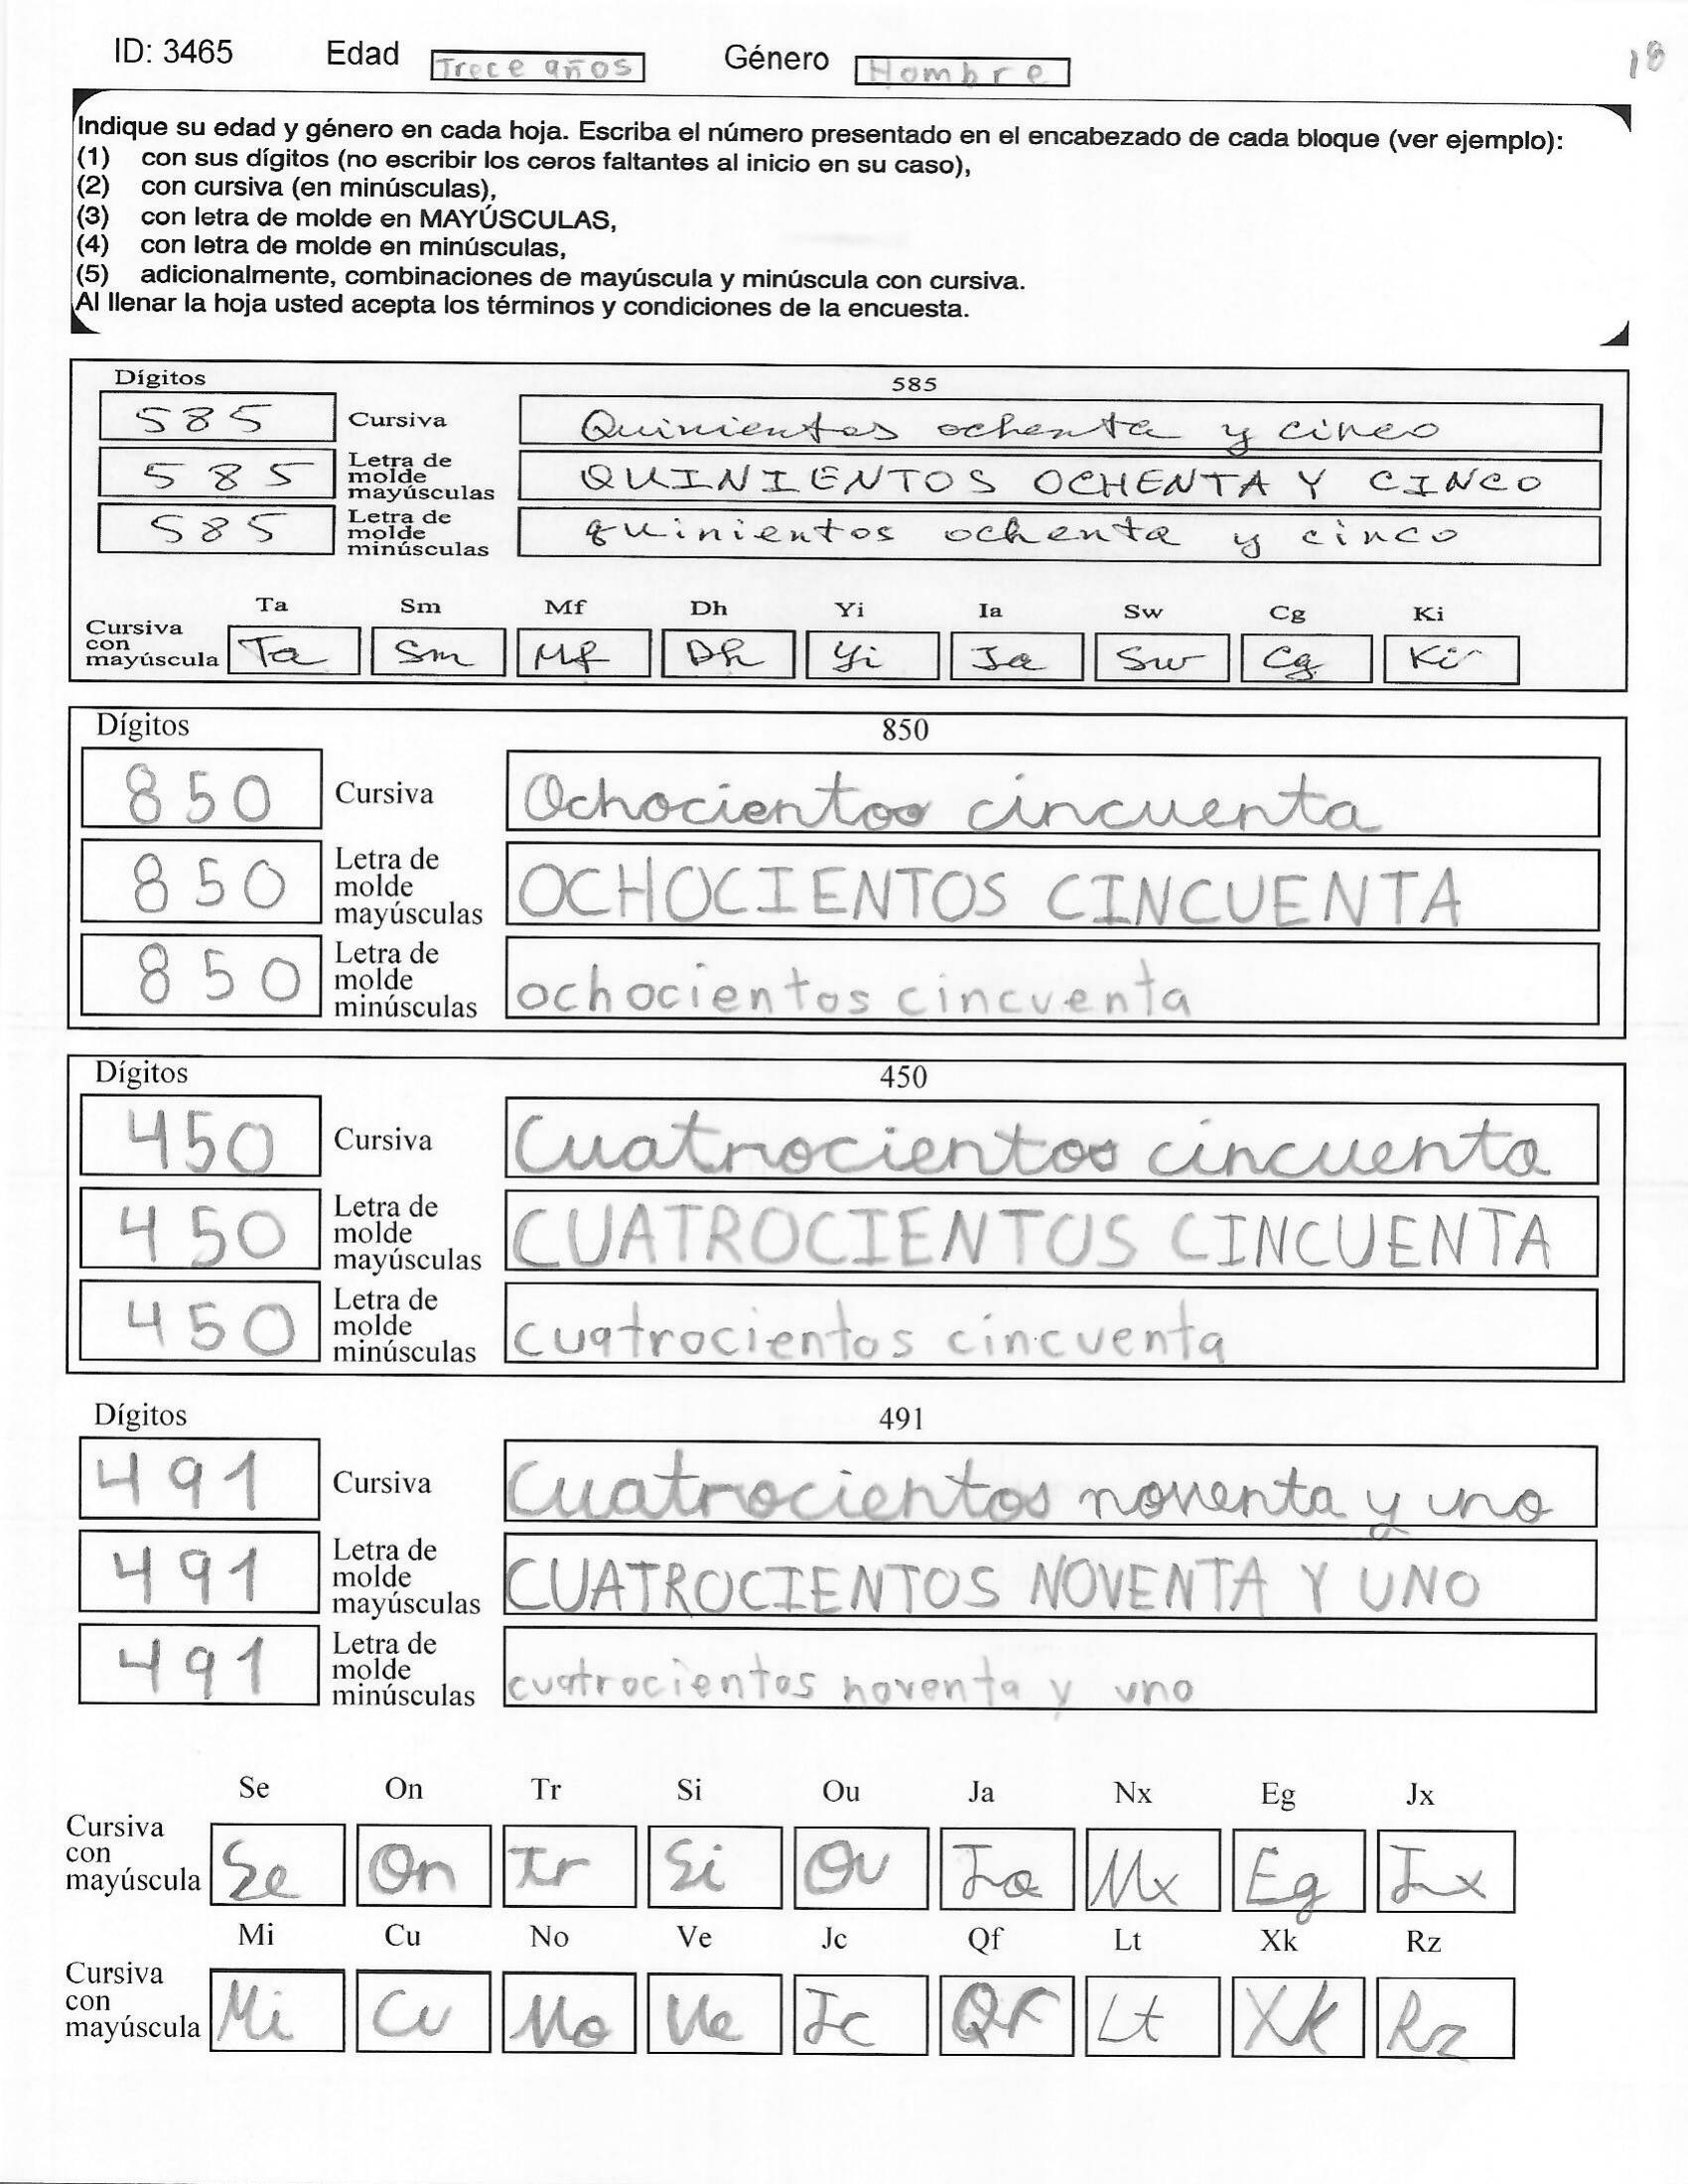 ID: 3465 Edad Trece años Género Hombre 18
Indique su edad y género en cada hoja. Escriba el número presentado en el encabezado de cada bloque (ver ejemplo):
(1) con sus dígitos (no escribir los ceros faltantes al inicio en su caso),
(2) con cursiva (en minúsculas),
(3) con letra de molde en MAYÚSCULAS,
(4) con letra de molde en minúsculas,
(5) adicionalmente, combinaciones de mayúscula y minúscula con cursiva.
Al llenar la hoja usted acepta los términos y condiciones de la encuesta.
Dígitos 585
585 Cursiva Quinientos ochenta y cinco
585 Letra de molde mayúsculas QUINIENTOS OCHENTA Y CINCO
585 Letra de molde minúsculas quinientos ochenta y cinco
Ta Sm Mf Dh Yi Ia Sw Cg Ki
Cursiva con mayúscula Ta Sm Mf Dh Yi Ia Sw Cg Ki
Dígitos 850
850 Cursiva Ochocientos cincuenta
850 Letra de molde mayúsculas OCHOCIENTOS CINCUENTA
850 Letra de molde minúsculas ochocientos cincuenta
Dígitos 450
450 Cursiva Cuatrocientos cincuenta
450 Letra de molde mayúsculas CUATROCIENTOS CINCUENTA
450 Letra de molde minúsculas cuatrocientos cincuenta
Dígitos 491
491 Cursiva Cuatrocientos noventa y uno
491 Letra de molde mayúsculas CUATROCIENTOS NOVENTA Y UNO
491 Letra de molde minúsculas cuatrocientos noventa y uno
Se On Tr Si Ou Ja Nx Eg Jx
Cursiva con mayúscula Se On Tr Si Ou Ja Nx Eg Jx
Mi Cu No Ve Jc Qf Lt Xk Rz
Cursiva con mayúscula Mi Cu No Ve Jc Qf Lt Xk Rz